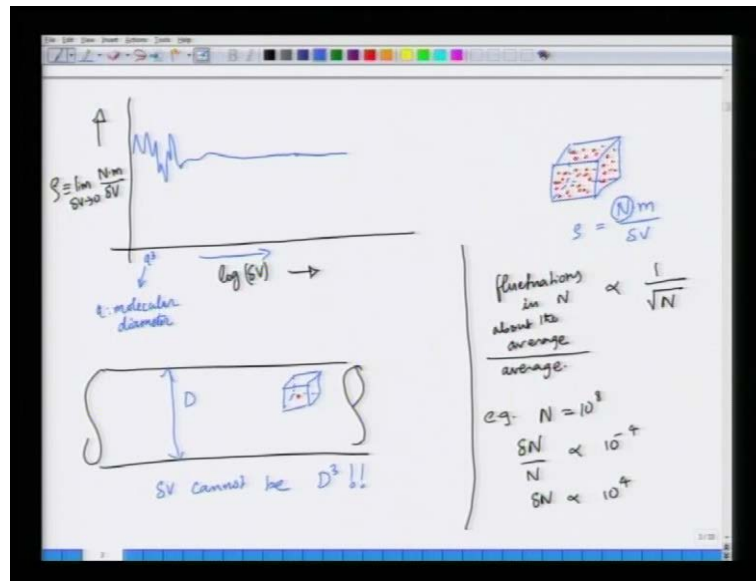 File Edit View Insert Actions Tools Help
ρ ≡ lim N·m
δV→0 δV
a³
a: molecular
diameter
log (δV) →
D
δV cannot be D³ !!
ρ = N m
δV
fluctuations
in N
about the
average
average.
∝ 1
√N
e.g. N = 10⁸
δN ∝ 10⁻⁴
N
δN ∝ 10⁴
2